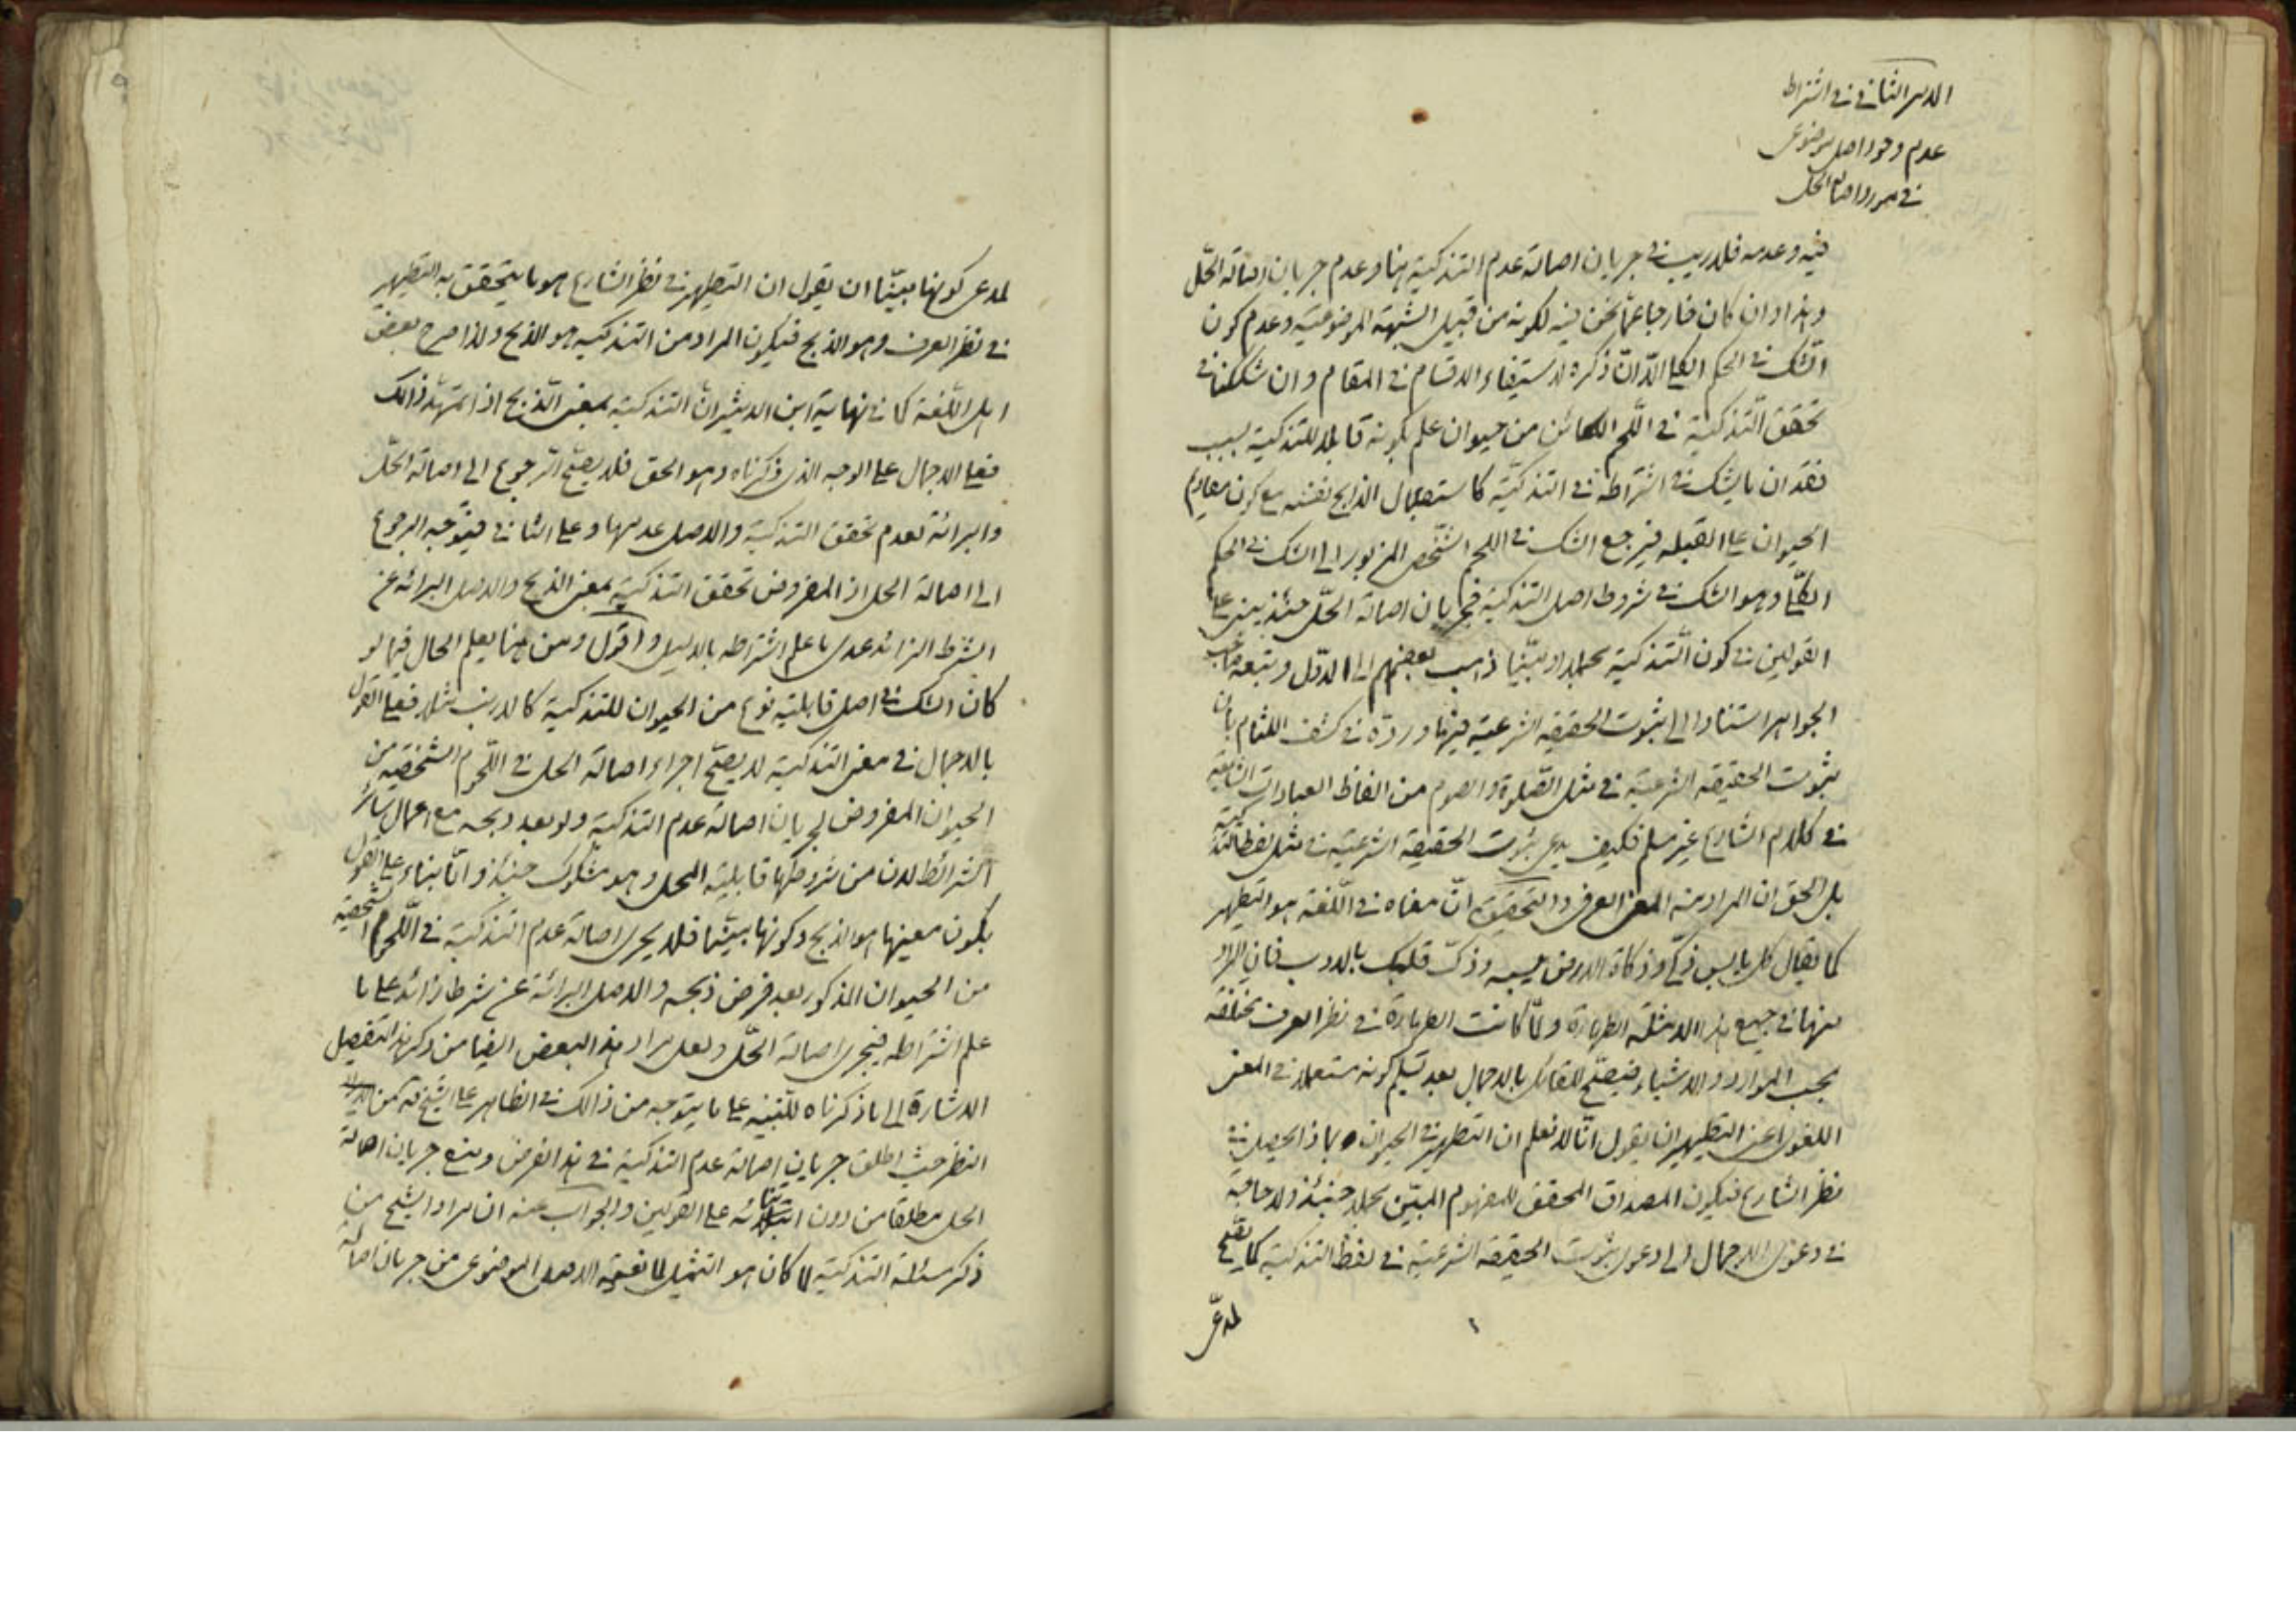 الامر الثاني في اشتراط
عدم وجود اصل موضوعي
في مورد اصالة الحل
فيه وعدمه فلا ريب في جريان اصالة عدم التذكية هنا وعدم جريان اصالة الحّل
وهذا وان كان خارجا عمّا نحن فيه لكونه من قبيل الشبهة الموضوعية وعدم كون
الشك في الحكم الكلي الّا انّ ذكره لاستيفاء الاقسام في المقام وان شككنا في
تحقق التّذكية في اللّحم الكائن من حيوان علم كونه قابلا للتذكية بسبب
فقدان ما يشك في اشتراطه في التذكيّة كاستقبال الذابح بنفسه مع كون مقاديم
الحيوان على القبله فيرجع الشك في اللحم الشّخصي المزبور الى الشك في الحكم
الكلّي وهو الشك في شروط اصل التذكية فجريان اصالة الحّل حينئذ يبنى على
القولين في كون التّذكية مجملا او مبيّنا ذهب بعضهم الى الاوّل وتبعه صاحب
الجواهر استنادا الى ثبوت الحقيقه الشرعيّة فيها وردّه في كشف اللثام بان
ثبوت الحقيقه الشرعيّة في مثل الصّلوة والصوم من الفاظ العبادات الشايعة
في كلام الشارع غير مسلم فكيف يدعى ثبوت الحقيقه الشرعيّة في مثل لفظ التذكية
بل الحق ان المراد منه المعنى العرفي والتحقيق انّ معناه في اللّغة هو التطهير
كما يقال كل يابس ذكّي وزكاة الارض يبسه وذكّ قلبك بالادب فان المراد
منها في جميع هذه الامثلة الطهارة ولمّا كانت الطهارة في نظر العرف مختلفه
بحسب الموارد والاشياء فيصحّ للقائل بالاجمال بعد تسليم كونه مستعملا في المعنى
اللغوي اعنى التطهير ان يقول انّا لا نعلم ان التطهير في الحيوان بماذا يحصل في
نظر الشارع فيكون المصداق المحقق للمفهوم المبيّن مجملا حينئذ ولا حاجة
في دعوى الاجمال الى دعوى ثبوت الحقيقه الشرعيّة في لفظ التذكية كما يصحّ
لمدعى
لمدعى كونها مبيّنا ان يقول ان التطهير في نظر الشارع هو ما يتحقق به التطهير
في نظر العرف وهو الذبح فيكون المراد من التذكية هو الذبح ولذا صرح بعض
اهل اللّغة كما في نهاية ابن الاثير ان التذكية بمعنى الّذبح اذا تمهّد ذالك
فعلى الاجمال على الوجه الذى ذكرناه وهو الحق فلا يصحّ الرّجوع الى اصالة الحّل
والبرائة لعدم تحقق التذكية والاصل عدمها وعلى الثاني فيتوّجه الرجوع
الى اصالة الحل اذ المفروض تحقق التذكية بمعنى الذبح والاصل البرائه عن
الشّرط الزائد عدى ما علم اشتراطه بالدليل واقول ومن هنا يعلم الحال فيما لو
كان الشك في اصل قابلية نوع من الحيوان للتذكية كالارنب مثلا فعلى القول
بالاجمال في معنى التذكية لا يصحّ اجراء اصالة الحل في اللّحوم الشّخصّيه من
الحيوان المفروض لجريان اصالة عدم التذكية ولو بعد ذبحه مع اعمال سائر
الشرائط لان من شروطها قابليّه المحل وهو مشكوك حينئذ وامّا بناء على القول
بكون معنيها هو الذبح وكونها مبيّنا فلا يجرى اصالة عدم التذكية في اللّحوم الشخصية
من الحيوان المذكور بعد فرض ذبحه والاصل البرائة عن شرط زائد على ما
علم اشتراطه فيجرى اصالة الحّل ولعل مراد هذا البعض ايضا من ذكر هذا التفصيل
الاشارة الى ما ذكرناه للتنبيه على ما يتوجه من ذالك في الظاهر على الشيخ
النظر حيث اطلق جريان اصالة عدم التذكية في هذا الفرض ومنع جريان اصالة
الحل مطلقا من دون ابتنائه على القولين والجواب عنه ان مراد الشيخ من
ذكر مسئلة التذكية لما كان هو التمثيل الاصل الموضوعى من جريان اصالة